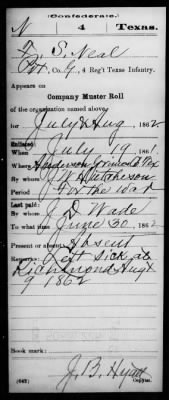 (Confederate.)
N 4 Texas.
S. Neal
Pvt, Co. G, 4 Reg't Texas Infantry.
Appears on
Company Muster Roll
of the organization named above,
for July & Aug, 1862.
Enlisted:
When July 19, 1861.
Where Anderson Grimes Co Tex
By whom J W Hutcheson
Period For the war
Last paid:
By whom J D Wade
To what time June 30, 1862.
Present or absent Absent
Remarks: Left sick at
Richmond Aug
9 1862
Book mark:
J. B. Hyatt
(642) Copyist.